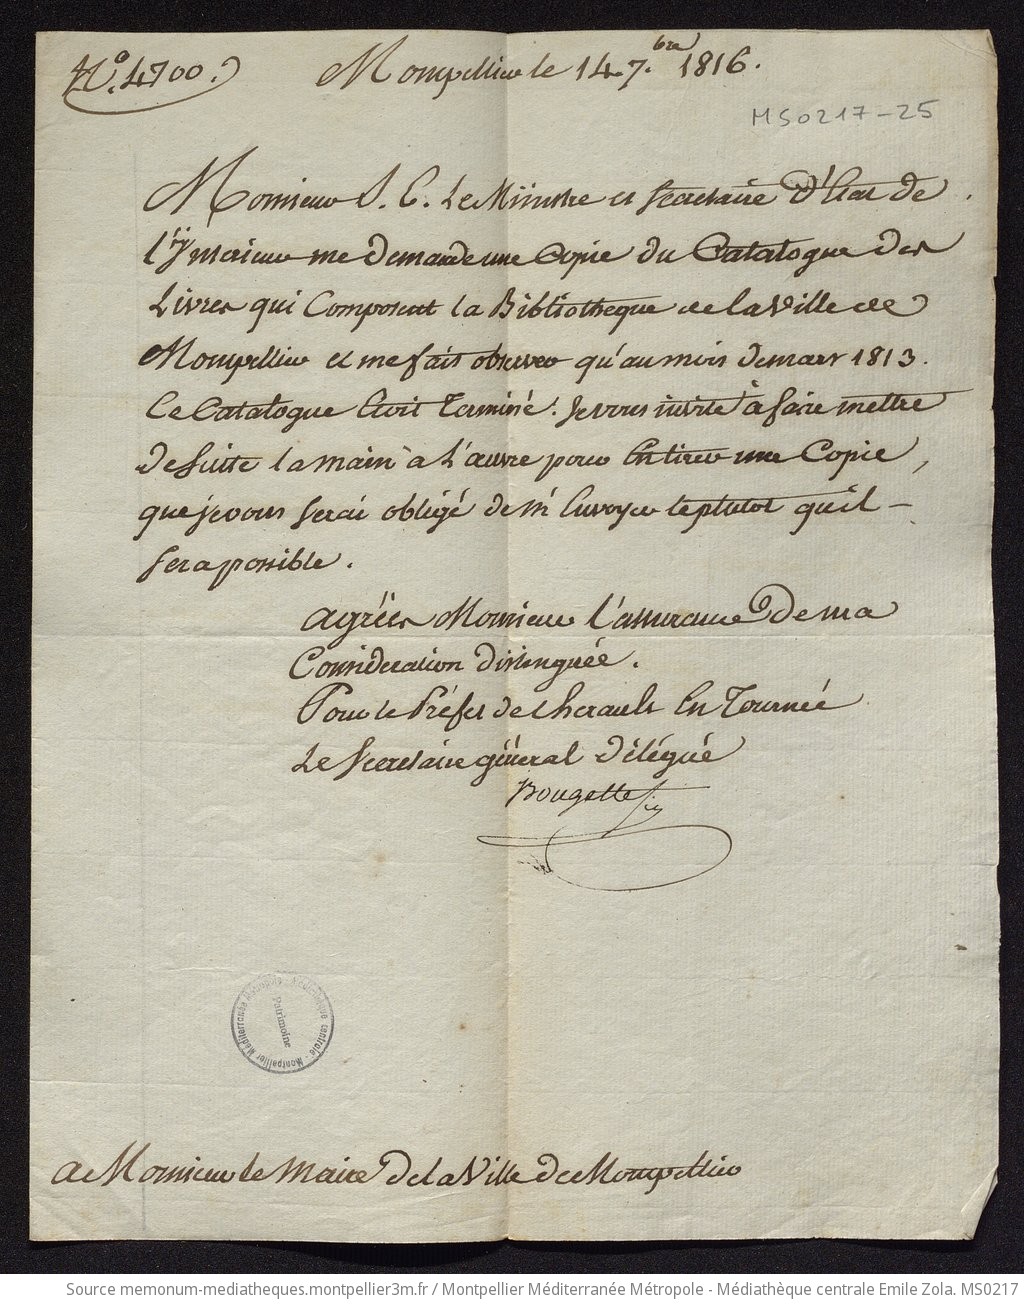 N.° 4700.
Montpellier le 14 7.bre 1816.
MS0217-25
Monsieur S. E. Le Ministre et Secretaire d'Etat de
l'Ynterieur me demande une Copie du Catalogue des
Livres qui Composent la Bibliotheque de la Ville de
Montpellier et me fait observer qu'au mois de mars 1813.
Ce Catalogue Etoit Terminé. Je vous invite à faire mettre
de suitte la main à l'œuvre pour En tirer une Copie,
que je vous serai obligé de m'Envoyer le plutot qu'il -
sera possible.
agréés Monsieur l'assurance de ma
Consideration distinguée.
Pour le Préfet de l'herault En Tournée
Le Secretaire général Délégué
Bougette
Montpellier Méditerranée Métropole - Médiathèque centrale
Patrimoine
a Monsieur le Maire de la Ville de Montpellier
Source memonum-mediatheques.montpellier3m.fr / Montpellier Méditerranée Métropole - Médiathèque centrale Emile Zola. MS0217